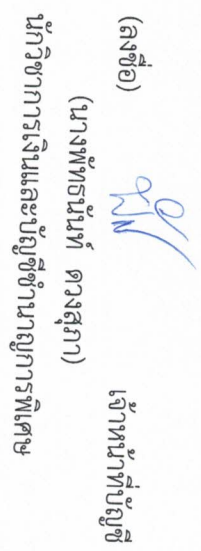 (ลงชื่อ) เจ้าหน้าที่บัญชี
(นางพัทธนันท์ ดวงสุภา)
นักวิชาการเงินและบัญชีชำนาญการพิเศษ